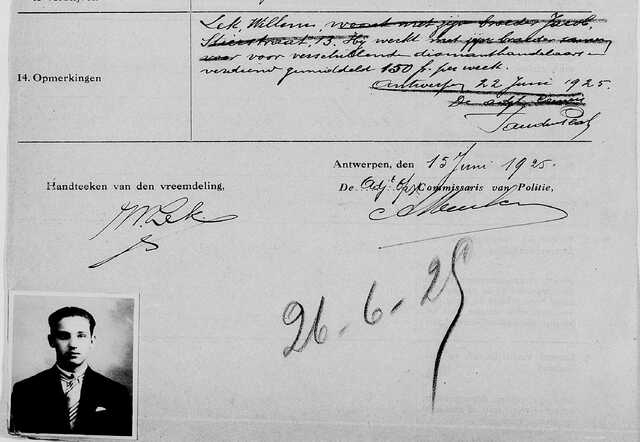 Lek, Willem, woont met zijn broeder Jacob,
Stierstraat, 13. Hij werkt met zijn broeder samen
voor verschillend diamanthandelaars en
verdiend gemiddeld 150 f. per week.
14. Opmerkingen
Antwerpen, 22 Juni 1925.
De
Antwerpen, den 15 Juni 1925.
Handteeken van den vreemdeling,
De Adjt Opr Commissaris van Politie,
W. Lek
26-6-25